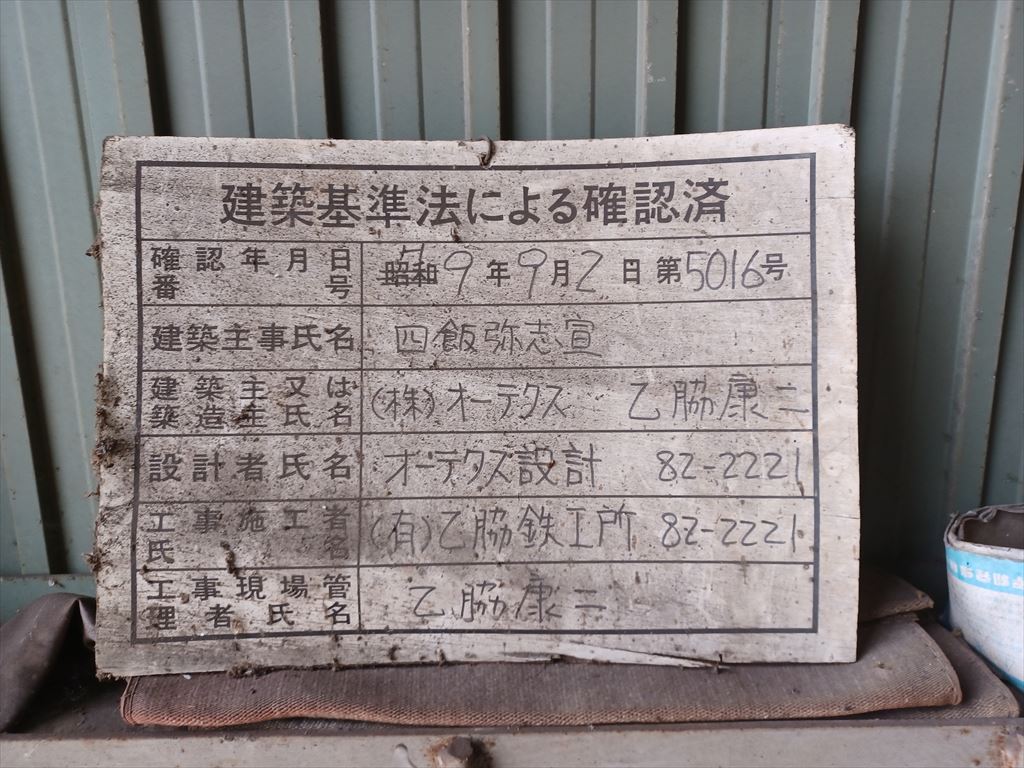 建築基準法による確認済
確認年月日番号 昭和9年9月2日第5016号
建築主事氏名 四飯弥志宣
建築主又は築造主氏名 (株)オーテクス 乙脇康二
設計者氏名 オーテクス設計 82-2221
工事施工者氏名 (有)乙脇鉄工所 82-2221
工事現場管理者氏名 乙脇康二